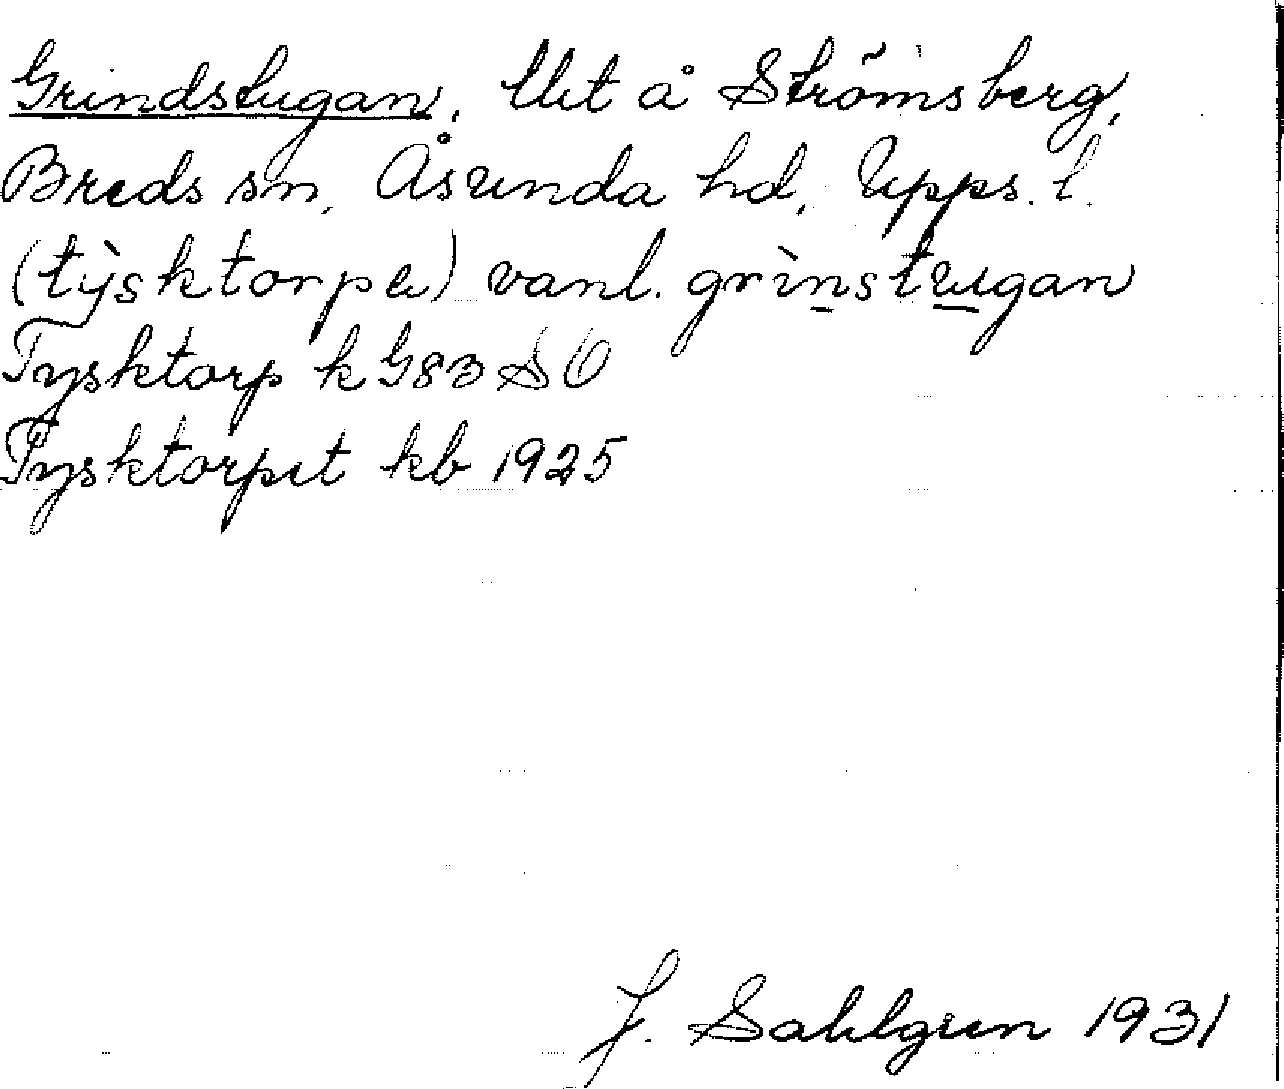 Grindstugan, lht å Strömsberg,
Breds sn, Åsunda hd, Upps. l.
(tỳsktorpe) vanl. grìnstugan
Tysktorp k G83 SO
Tysktorpet kb 1925
J. Sahlgren 1931